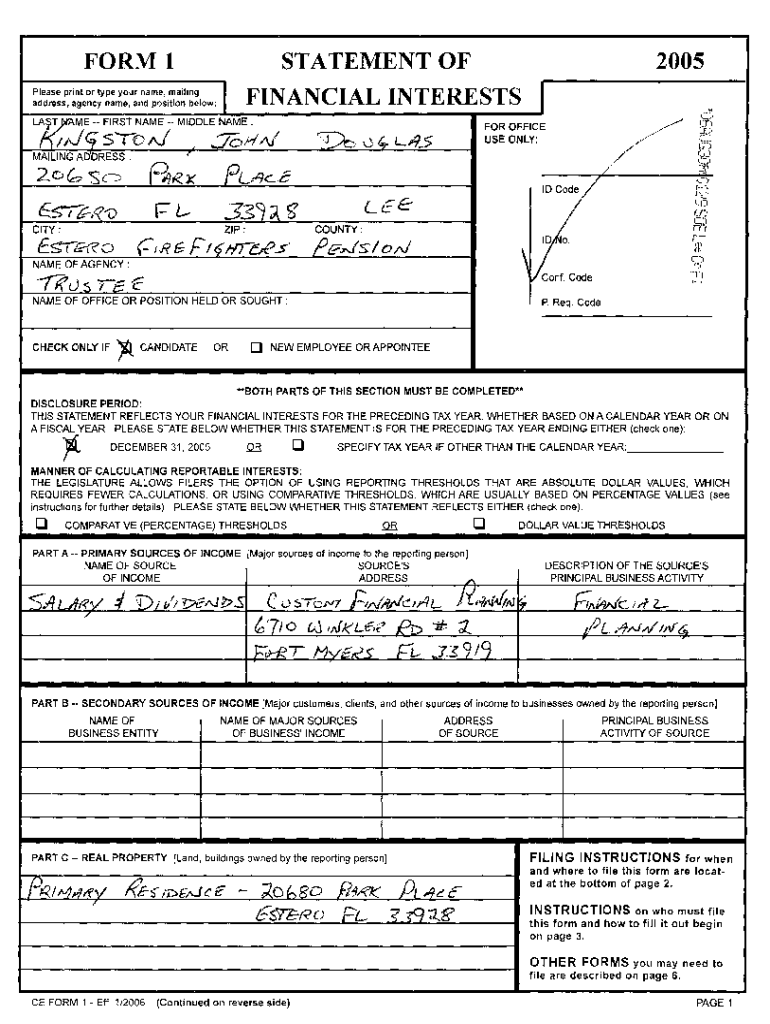 FORM 1 STATEMENT OF 2005
Please print or type your name, mailing
address, agency name, and position below:
FINANCIAL INTERESTS
LAST NAME -- FIRST NAME -- MIDDLE NAME :
KINGSTON, JOHN DOUGLAS
MAILING ADDRESS :
20680 PARK PLACE
ESTERO FL 33928 LEE
CITY : ZIP : COUNTY :
ESTERO FIREFIGHTERS PENSION
NAME OF AGENCY :
TRUSTEE
NAME OF OFFICE OR POSITION HELD OR SOUGHT :
CHECK ONLY IF CANDIDATE OR NEW EMPLOYEE OR APPOINTEE
FOR OFFICE
USE ONLY:
ID Code
ID No.
Conf. Code
P. Req. Code
**BOTH PARTS OF THIS SECTION MUST BE COMPLETED**
DISCLOSURE PERIOD:
THIS STATEMENT REFLECTS YOUR FINANCIAL INTERESTS FOR THE PRECEDING TAX YEAR, WHETHER BASED ON A CALENDAR YEAR OR ON
A FISCAL YEAR PLEASE STATE BELOW WHETHER THIS STATEMENT IS FOR THE PRECEDING TAX YEAR ENDING EITHER (check one):
DECEMBER 31, 2005 OR SPECIFY TAX YEAR IF OTHER THAN THE CALENDAR YEAR:
MANNER OF CALCULATING REPORTABLE INTERESTS:
THE LEGISLATURE ALLOWS FILERS THE OPTION OF USING REPORTING THRESHOLDS THAT ARE ABSOLUTE DOLLAR VALUES, WHICH
REQUIRES FEWER CALCULATIONS, OR USING COMPARATIVE THRESHOLDS, WHICH ARE USUALLY BASED ON PERCENTAGE VALUES (see
instructions for further details) PLEASE STATE BELOW WHETHER THIS STATEMENT REFLECTS EITHER (check one).
COMPARATIVE (PERCENTAGE) THRESHOLDS OR DOLLAR VALUE THRESHOLDS
PART A -- PRIMARY SOURCES OF INCOME [Major sources of income to the reporting person]
NAME OF SOURCE SOURCE'S DESCRIPTION OF THE SOURCE'S
OF INCOME ADDRESS PRINCIPAL BUSINESS ACTIVITY
SALARY & DIVIDENDS CUSTOM FINANCIAL PLANNING FINANCIAL
6710 WINKLER RD # 2 PLANNING
FORT MYERS FL 33919
PART B -- SECONDARY SOURCES OF INCOME [Major customers, clients, and other sources of income to businesses owned by the reporting person]
NAME OF NAME OF MAJOR SOURCES ADDRESS PRINCIPAL BUSINESS
BUSINESS ENTITY OF BUSINESS' INCOME OF SOURCE ACTIVITY OF SOURCE
PART C -- REAL PROPERTY [Land, buildings owned by the reporting person]
PRIMARY RESIDENCE - 20680 PARK PLACE
ESTERO FL 33928
FILING INSTRUCTIONS for when
and where to file this form are locat-
ed at the bottom of page 2.
INSTRUCTIONS on who must file
this form and how to fill it out begin
on page 3.
OTHER FORMS you may need to
file are described on page 6.
CE FORM 1 - Eff 1/2006 (Continued on reverse side) PAGE 1